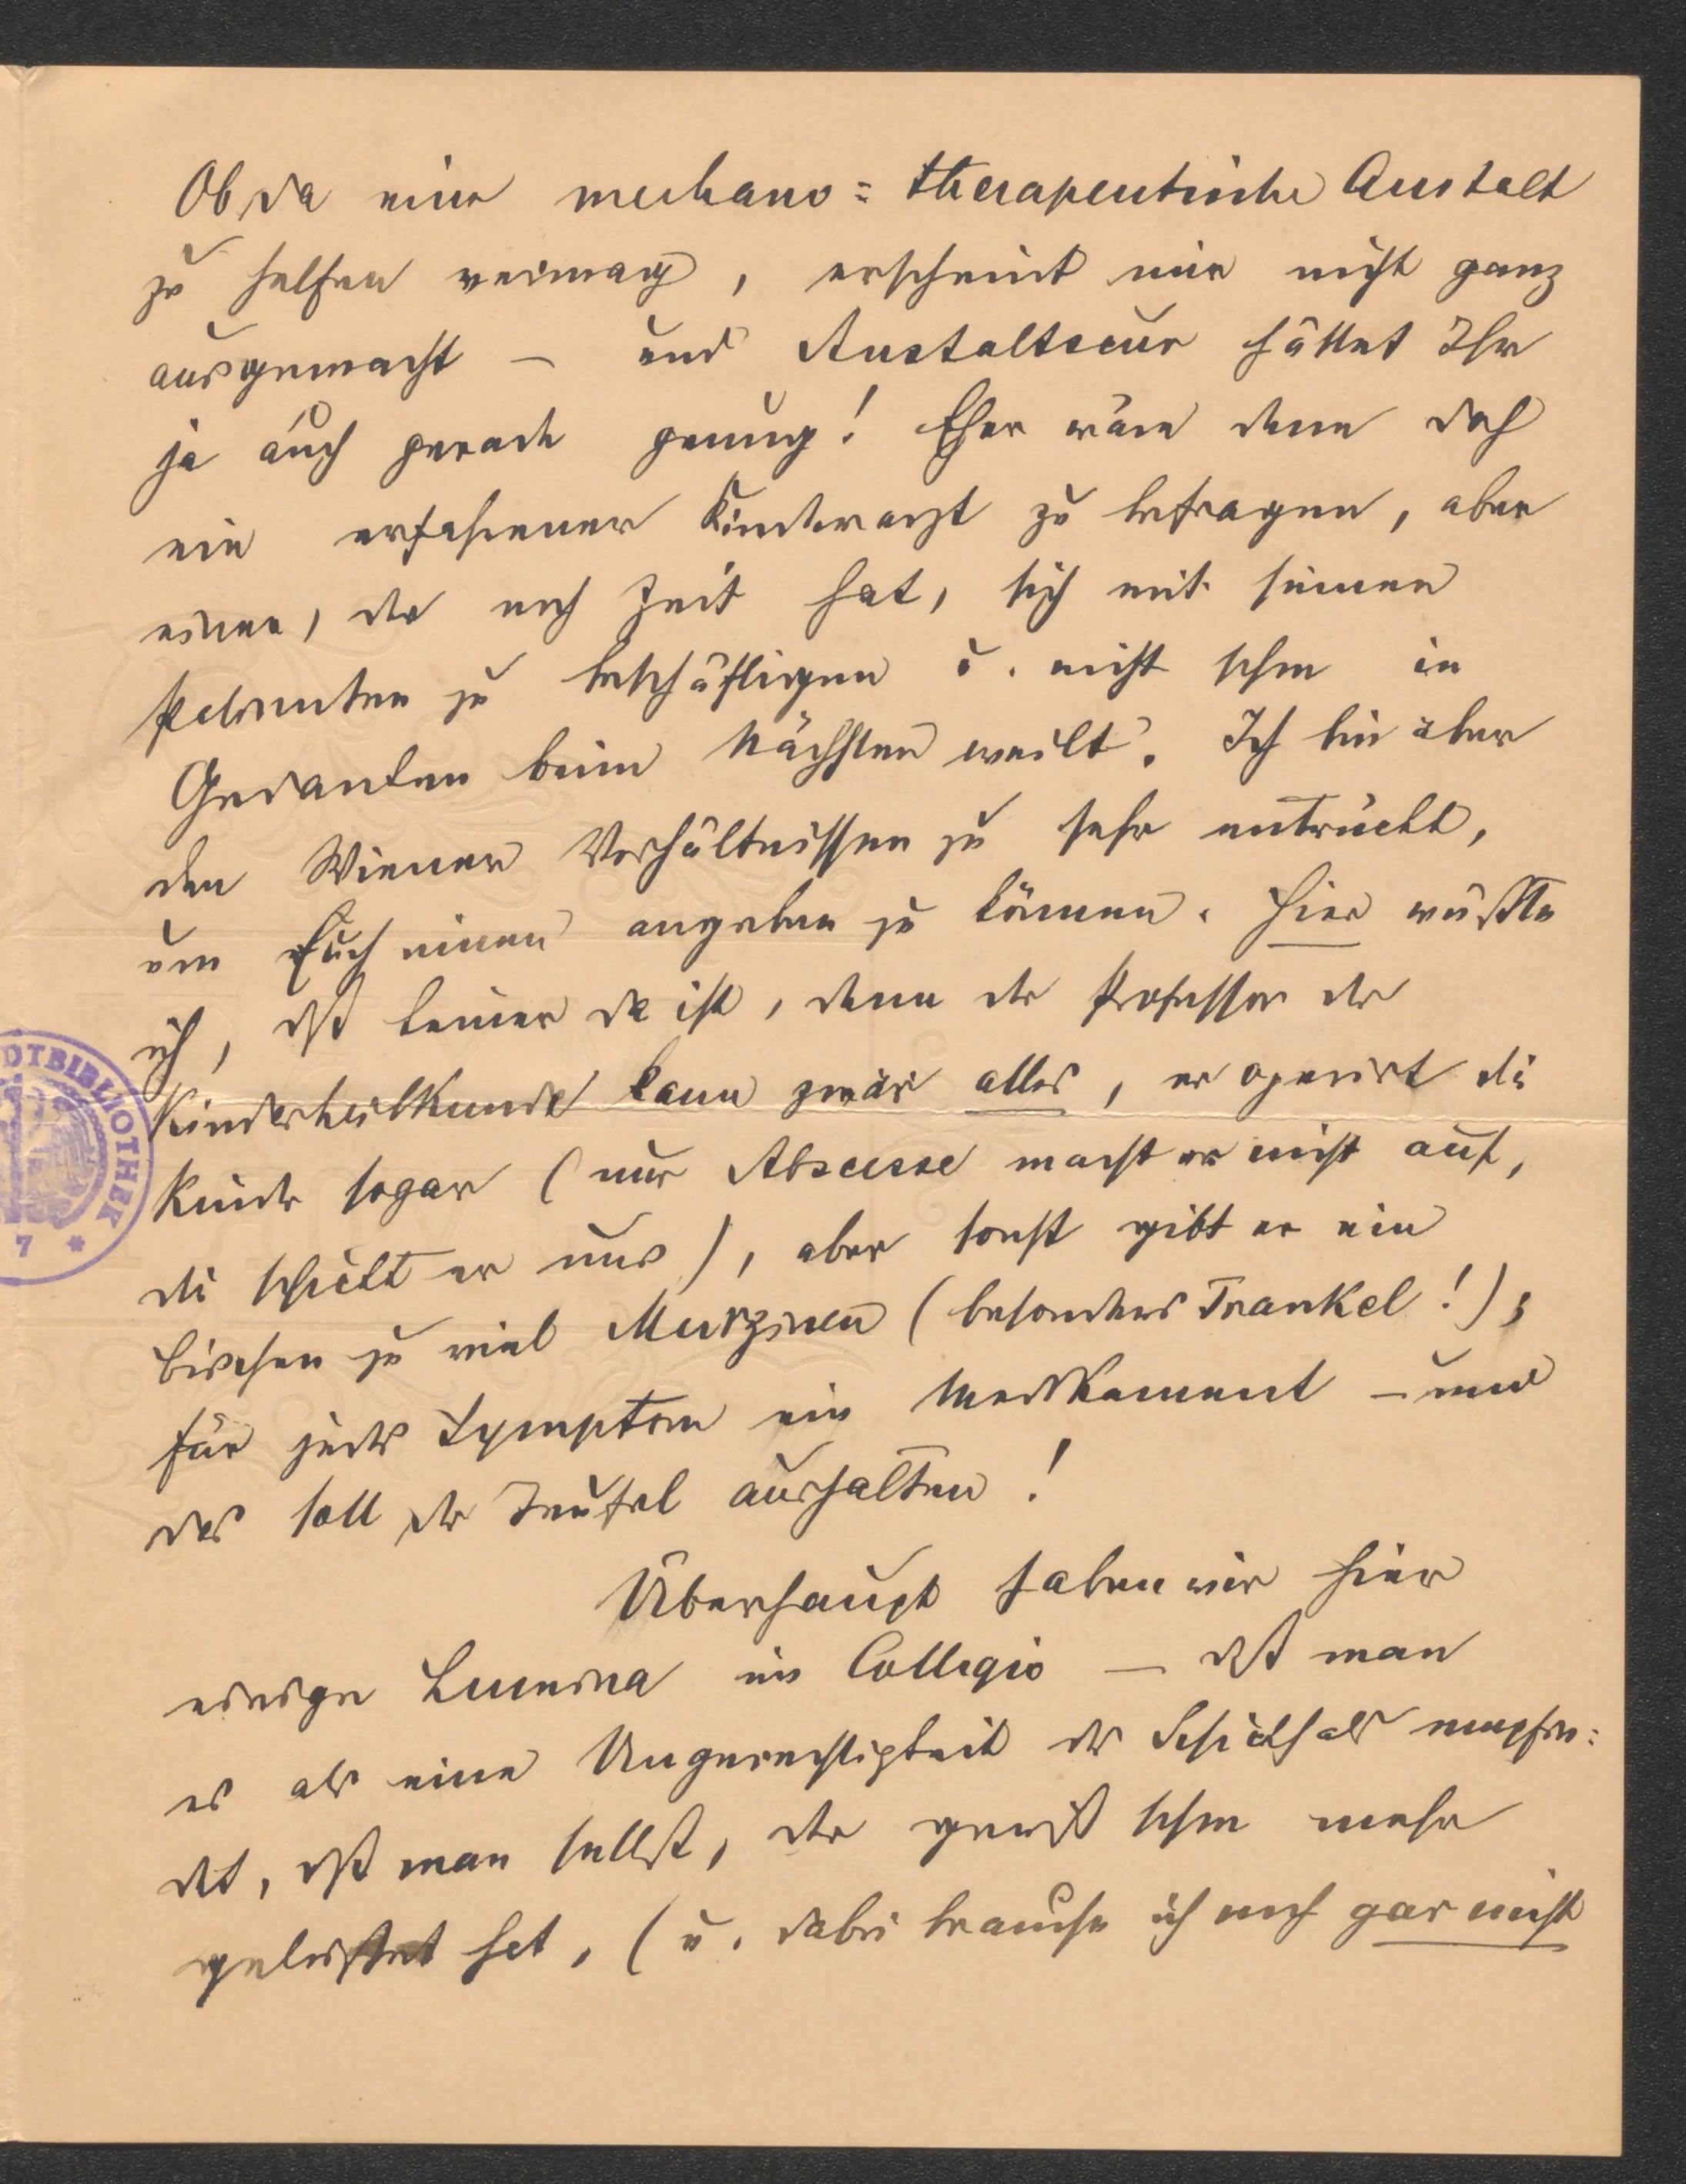 Ob da eine mechano=therapeutische Anstalt
zu helfen vermag, erscheint mir nicht ganz
ausgemacht – und Anstaltscur hättet Ihr
ja auch gerade genug! Eher wäre denn doch
ein erfahrener Kinderarzt zu befragen, aber
einer, der noch Zeit hat, sich mit seinen
Patienten zu beschäftigen u. nicht schon in
Gedanken beim Nächsten weilt. Ich bin aber
den Wiener Verhältnissen zu sehr entrückt,
um Euch einen angeben zu können. Hier wüßte
ich, daß keiner da ist, denn der Professor der
Kinderheilkunde kann zwar alles, er operirt die
Kinder sogar (nur Abscesse macht er nicht auf,
die schickt er uns), aber sonst gibt er ein
bischen zu viel Medizinen (besonders Trankel!);
für jedes Symptom ein Medikament – und
das soll der Teufel aushalten!
Überhaupt haben wir hier
einige Lumina im Collegio – daß man
es als eine Ungerechtigkeit des Schicksals empfin=
det, daß man selbst, der gewiß schon mehr
geleistet hat, (u. dabei brauche ich noch gar nicht
DTBIBLIOTHEK
7 *